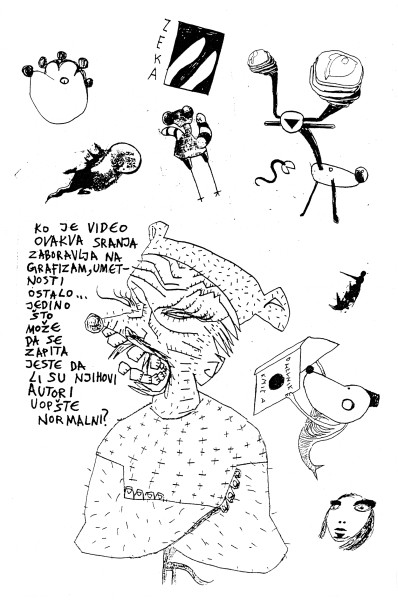 ZEKA
KO JE VIDEO
OVAKVA SRANJA
ZABORAVLJA NA
GRAFIZAM, UMET-
NOSTI
OSTALO...
JEDINO
ŠTO
MOŽE
DA SE
ZAPITA
JESTE DA
LI SU NJIHOVI
AUTORI
UOPŠTE
NORMALNI?